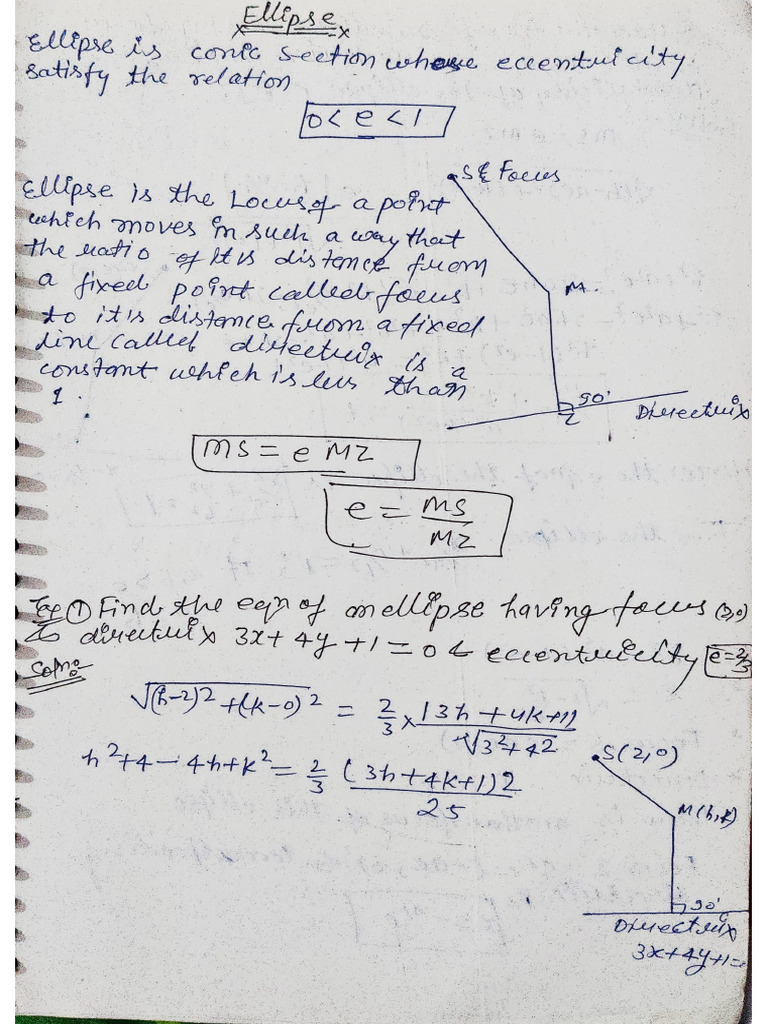 Ellipse
Ellipse is conic section whose eccentricity
satisfy the relation
0 < e < 1
S & Focus
Ellipse is the Locus of a point
which moves in such a way that
the ratio of it is distence from
a fixed point called focus
to it is distance from a fixed
line called directrix is a
constant which is less than
1.
M
90°
Z
Directrix
MS = e MZ
e = MS/MZ
① Find the eqn of an ellipse having focus (2,0)
& directrix 3x + 4y + 1 = 0 & eccentricity e = 2/3
Soln:
√(h-2)² + (k-0)² = 2/3 × |3h + 4k + 1|/√3² + 4²
h² + 4 - 4h + k² = 2/3 (3h + 4k + 1)2/25
S(2,0)
M(h,k)
90°
Directrix
3x+4y+1=